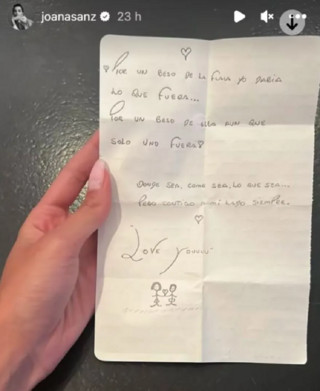 joanasanz 23 h
Por un beso de la flaca yo daría
lo que fuera...
Por un beso de ella aun que
solo uno fuera
Donde sea, como sea, lo que sea...
Pero contigo mi siempre.
Love you